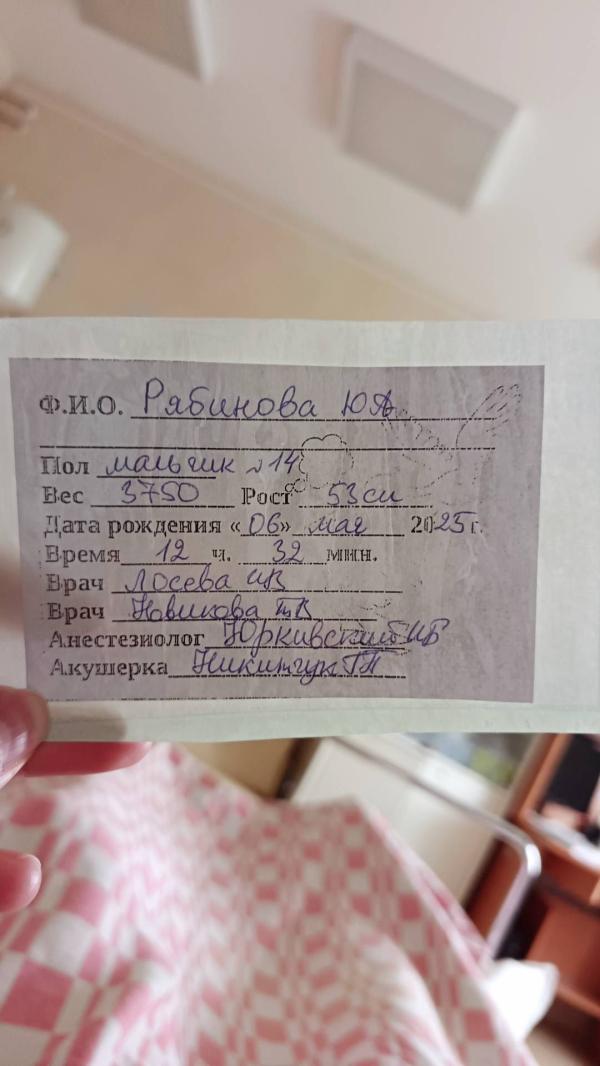 Ф.И.О. Рябинова ЮА
Пол мальчик №14
Вес 3750 Рост 53см
Дата рождения «06» мая 2025г.
Время 12 ч. 32 мин.
Врач Лосева ИВ
Врач Новикова ТВ
Анестезиолог Юркивский ИБ
Акушерка Никитчук ГП